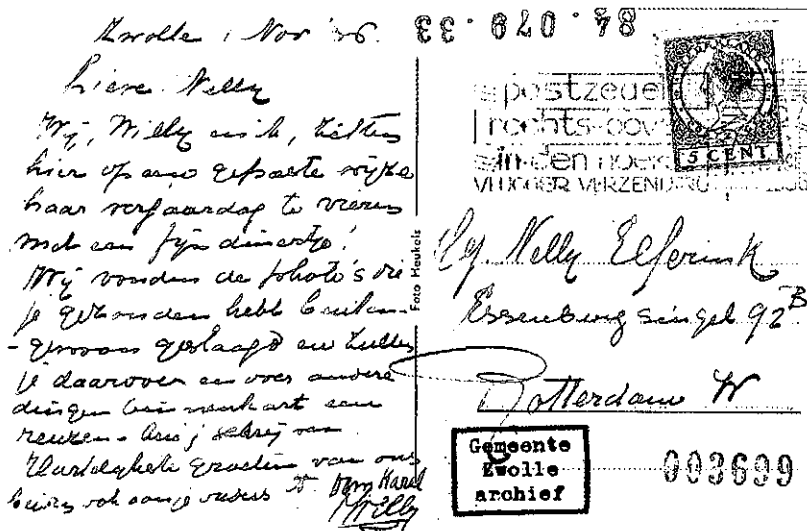 Zwolle, Nov '36.
Lieve Nelly
Wij, Willy en ik, zitten
hier op een gepaste wijze
haar verjaardag te vieren
met een fijn dinertje!
Wij vonden de photo's die
je gezonden hebt buiten-
-gewoon geslaagd en zullen
je daarover en over andere
dingen binnenkort een
reuzen-brief schrijven
Hartelijke groeten van ons
beiden ook aan je ouders
Willy
Foto Heukels
84.079.33
postzegel
rechts-bov
in-den hoek
VLUGGER VERZENDING
5 CENT
Nelly Elferink
Essenburgsingel 92B
Rotterdam W
Gemeente
Zwolle
archief
003699